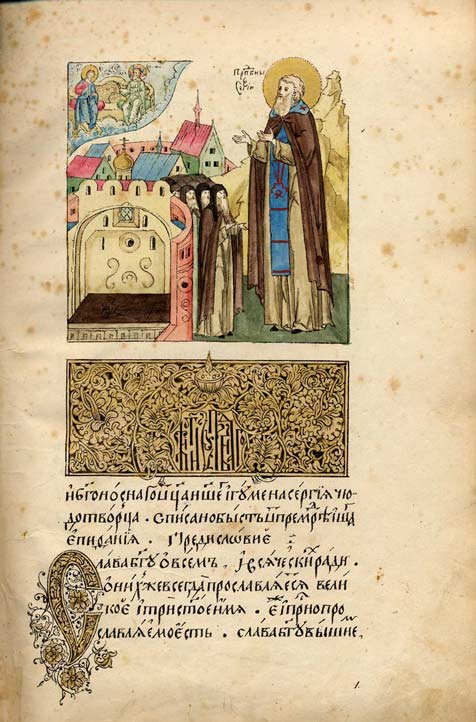 Прпⷣбны
Сергїи
и҆ б҃гоноснаго ѿц҃а нашего и҆гумена сергїѧ чю
дотворца . списано бысть ѿ премⷣрѣиша
епиѳанїѧ . Предисловїе :
Слава бг҃у о всемъ . и҆ всѧческиⷯ ради .
о нихже всегда прославлѧетсѧ вели
кое и҆ трист҃ое имѧ . еже и҆ присно про
славлѧемо есть . слава бг҃у вышне